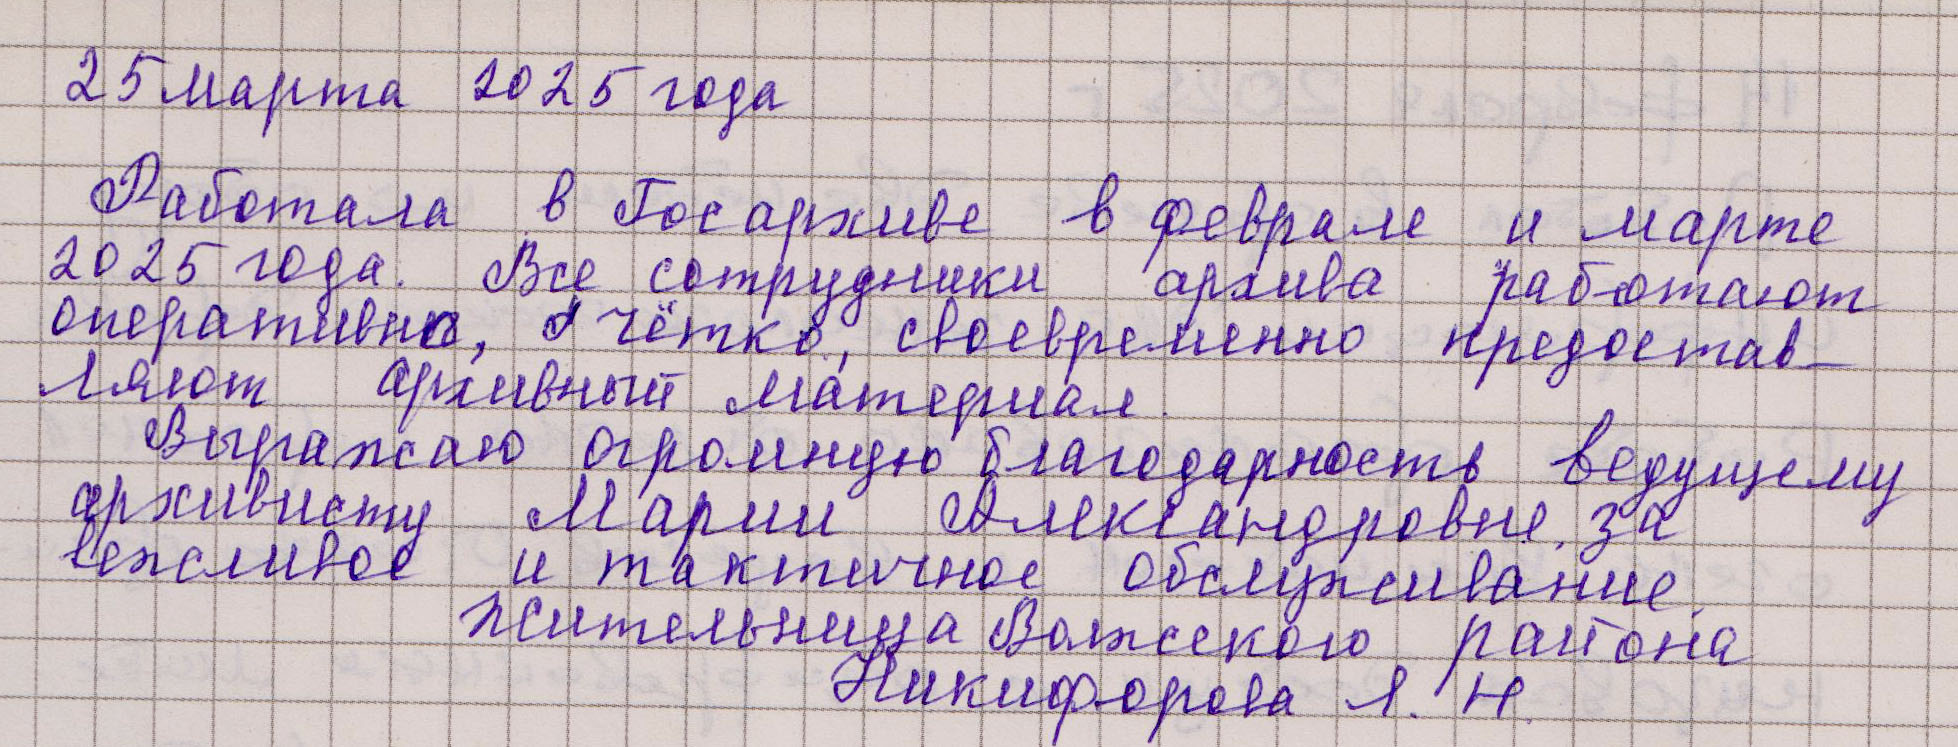 25 марта 2025 года
Работала в Госархиве в феврале и марте
2025 года. Все сотрудники архива работают
оперативно, чётко, своевременно предостав-
ляют архивный материал.
Выражаю огромную благодарность ведущему
архивисту Марии Александровне, за
вежливое и тактичное обслуживание.
жительница Волжского района
Никифорова Л. Н.